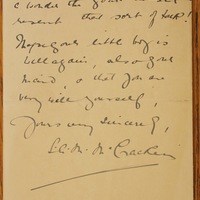 I wonder the
resent that sort of
Hope your little boy is
well again, also your
maid, & that you are
very well yourself,
Yours very sincerely,
McCracken